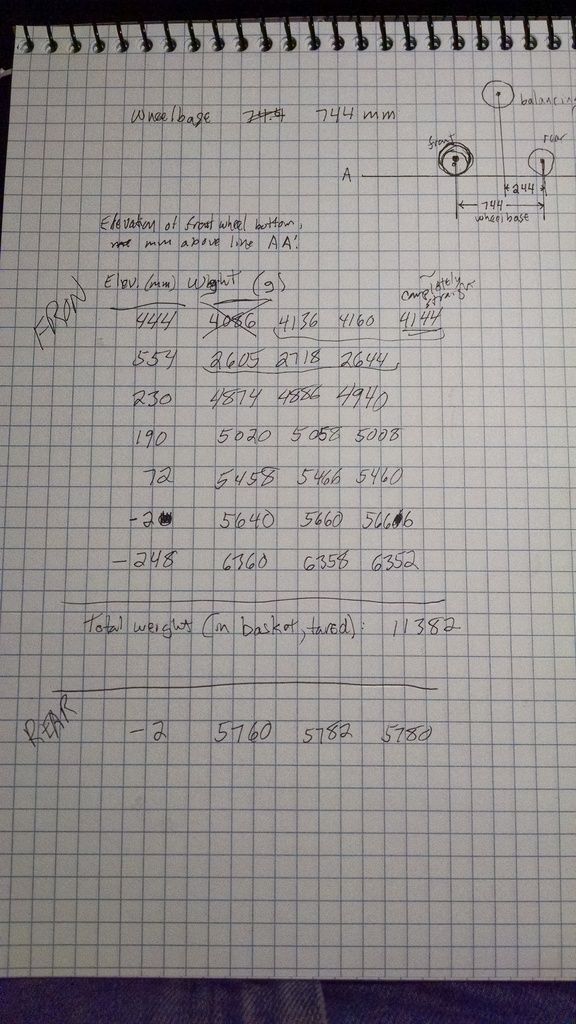 Wheelbase 744 mm
balancing
front
rear
A
244
744
wheelbase
Elevation of front wheel bottom,
mm above line AA'.
Elev. (mm) Weight (g)
completely
straight
FRON
444 4086 4136 4160 4144
554 2605 2718 2644
230 4874 4886 4940
190 5020 5058 5008
72 5458 5466 5460
-2 5640 5660 5666
-248 6360 6358 6352
Total weight (in basket, tared): 11382
REAR
-2 5760 5782 5780